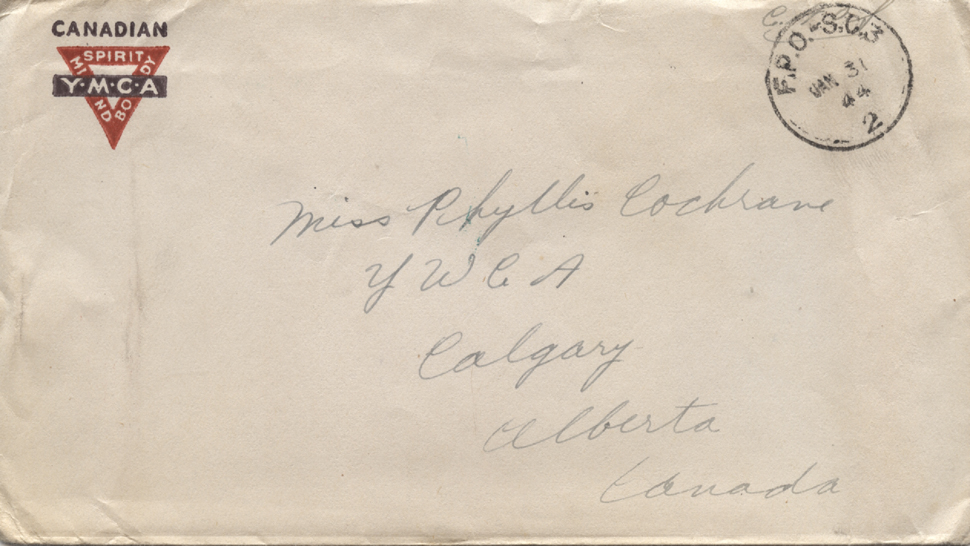 CANADIAN
SPIRIT
MIND
BODY
Y·M·C·A
F.P.O.-S.C.3
JAN 31
44
2
Miss Phyllis Cochrane
Y W C A
Calgary
Alberta
Canada